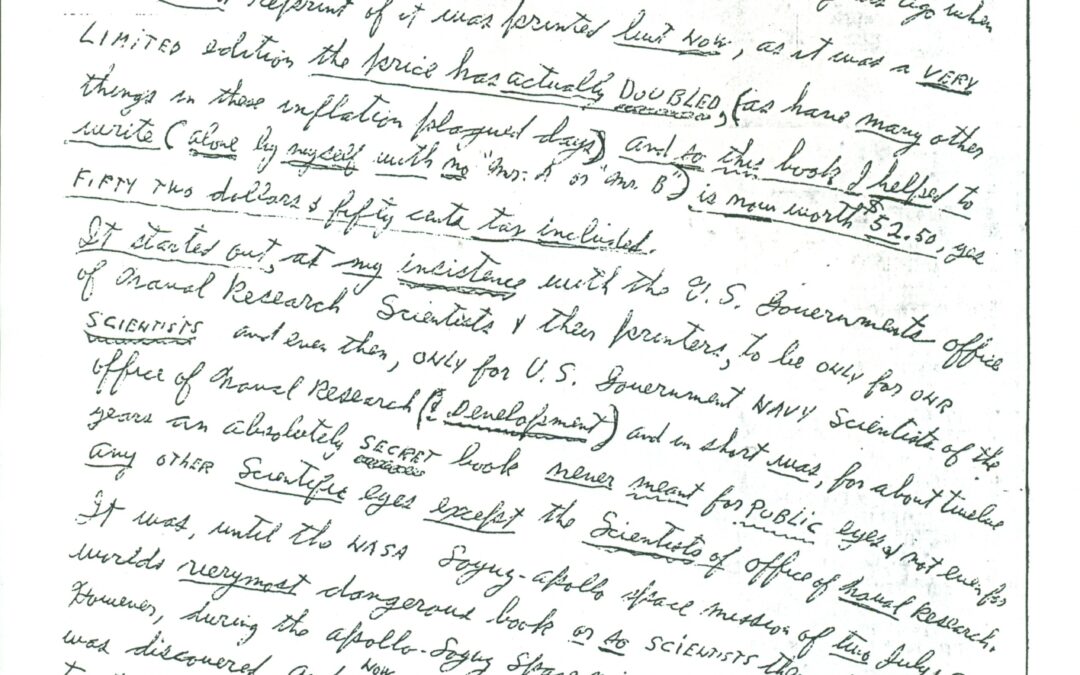 ago when
reprint of it was printed but NOW, as it was a VERY
LIMITED edition the price has actually DOUBLED, (as have many other
things in these inflation plagued days) and so this book I helped to
write (alone by myself with no "Mr. A or "Mr. B") is now worth $52.50, yes
FIFTY TWO dollars & fifty cents tax included.
It started out, at my insistence with the U.S. Governments office
of Naval Research Scientists & their printers, to be ONLY for OUR
SCIENTISTS and even then, ONLY for U.S. Government NAVY Scientists of the
office of Naval Research (& Development) and in short was, for about twelve
years an absolutely SECRET book never meant for PUBLIC eyes & not even for
any OTHER Scientific eyes except the Scientists of office of Naval Research.
It was, until the NASA Soyuz-apollo space mission of two July
worlds verymost dangerous book or so SCIENTISTS
However, during the apollo-Soyuz
was discovered NOW